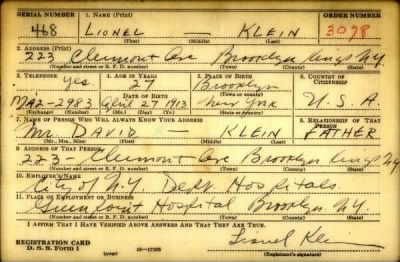 SERIAL NUMBER 1. NAME (Print) ORDER NUMBER
468 LIONEL — KLEIN 3078
(First) (Middle) (Last)
2. ADDRESS (Print)
223 Clermont Ave Brooklyn Kings N.Y.
(Number and street or R. F. D. number) (Town) (County) (State)
3. TELEPHONE 4. AGE IN YEARS 5. PLACE OF BIRTH 6. COUNTRY OF CITIZENSHIP
Yes. 27 Brooklyn
DATE OF BIRTH (Town or county)
MA2-2983 April 27 1913 New York U.S.A.
(Exchange) (Number) (Mo.) (Day) (Yr.) (State or country)
7. NAME OF PERSON WHO WILL ALWAYS KNOW YOUR ADDRESS 8. RELATIONSHIP OF THAT PERSON
Mr. DAVID — KLEIN FATHER
(Mr., Mrs., Miss) (First) (Middle) (Last)
9. ADDRESS OF THAT PERSON
223 - Clermont Ave Brooklyn Kings NY
(Number and street or R. F. D. number) (Town) (County) (State)
10. EMPLOYER'S NAME
City of N.Y. Dept. Hospitals
11. PLACE OF EMPLOYMENT OR BUSINESS
Greenpoint Hospital Brooklyn N.Y.
(Number and street or R. F. D. number) (Town) (County) (State)
I AFFIRM THAT I HAVE VERIFIED ABOVE ANSWERS AND THAT THEY ARE TRUE.
Lionel Klein
REGISTRATION CARD
D. S. S. Form 1 (over) 16—17105 (Registrant's signature)